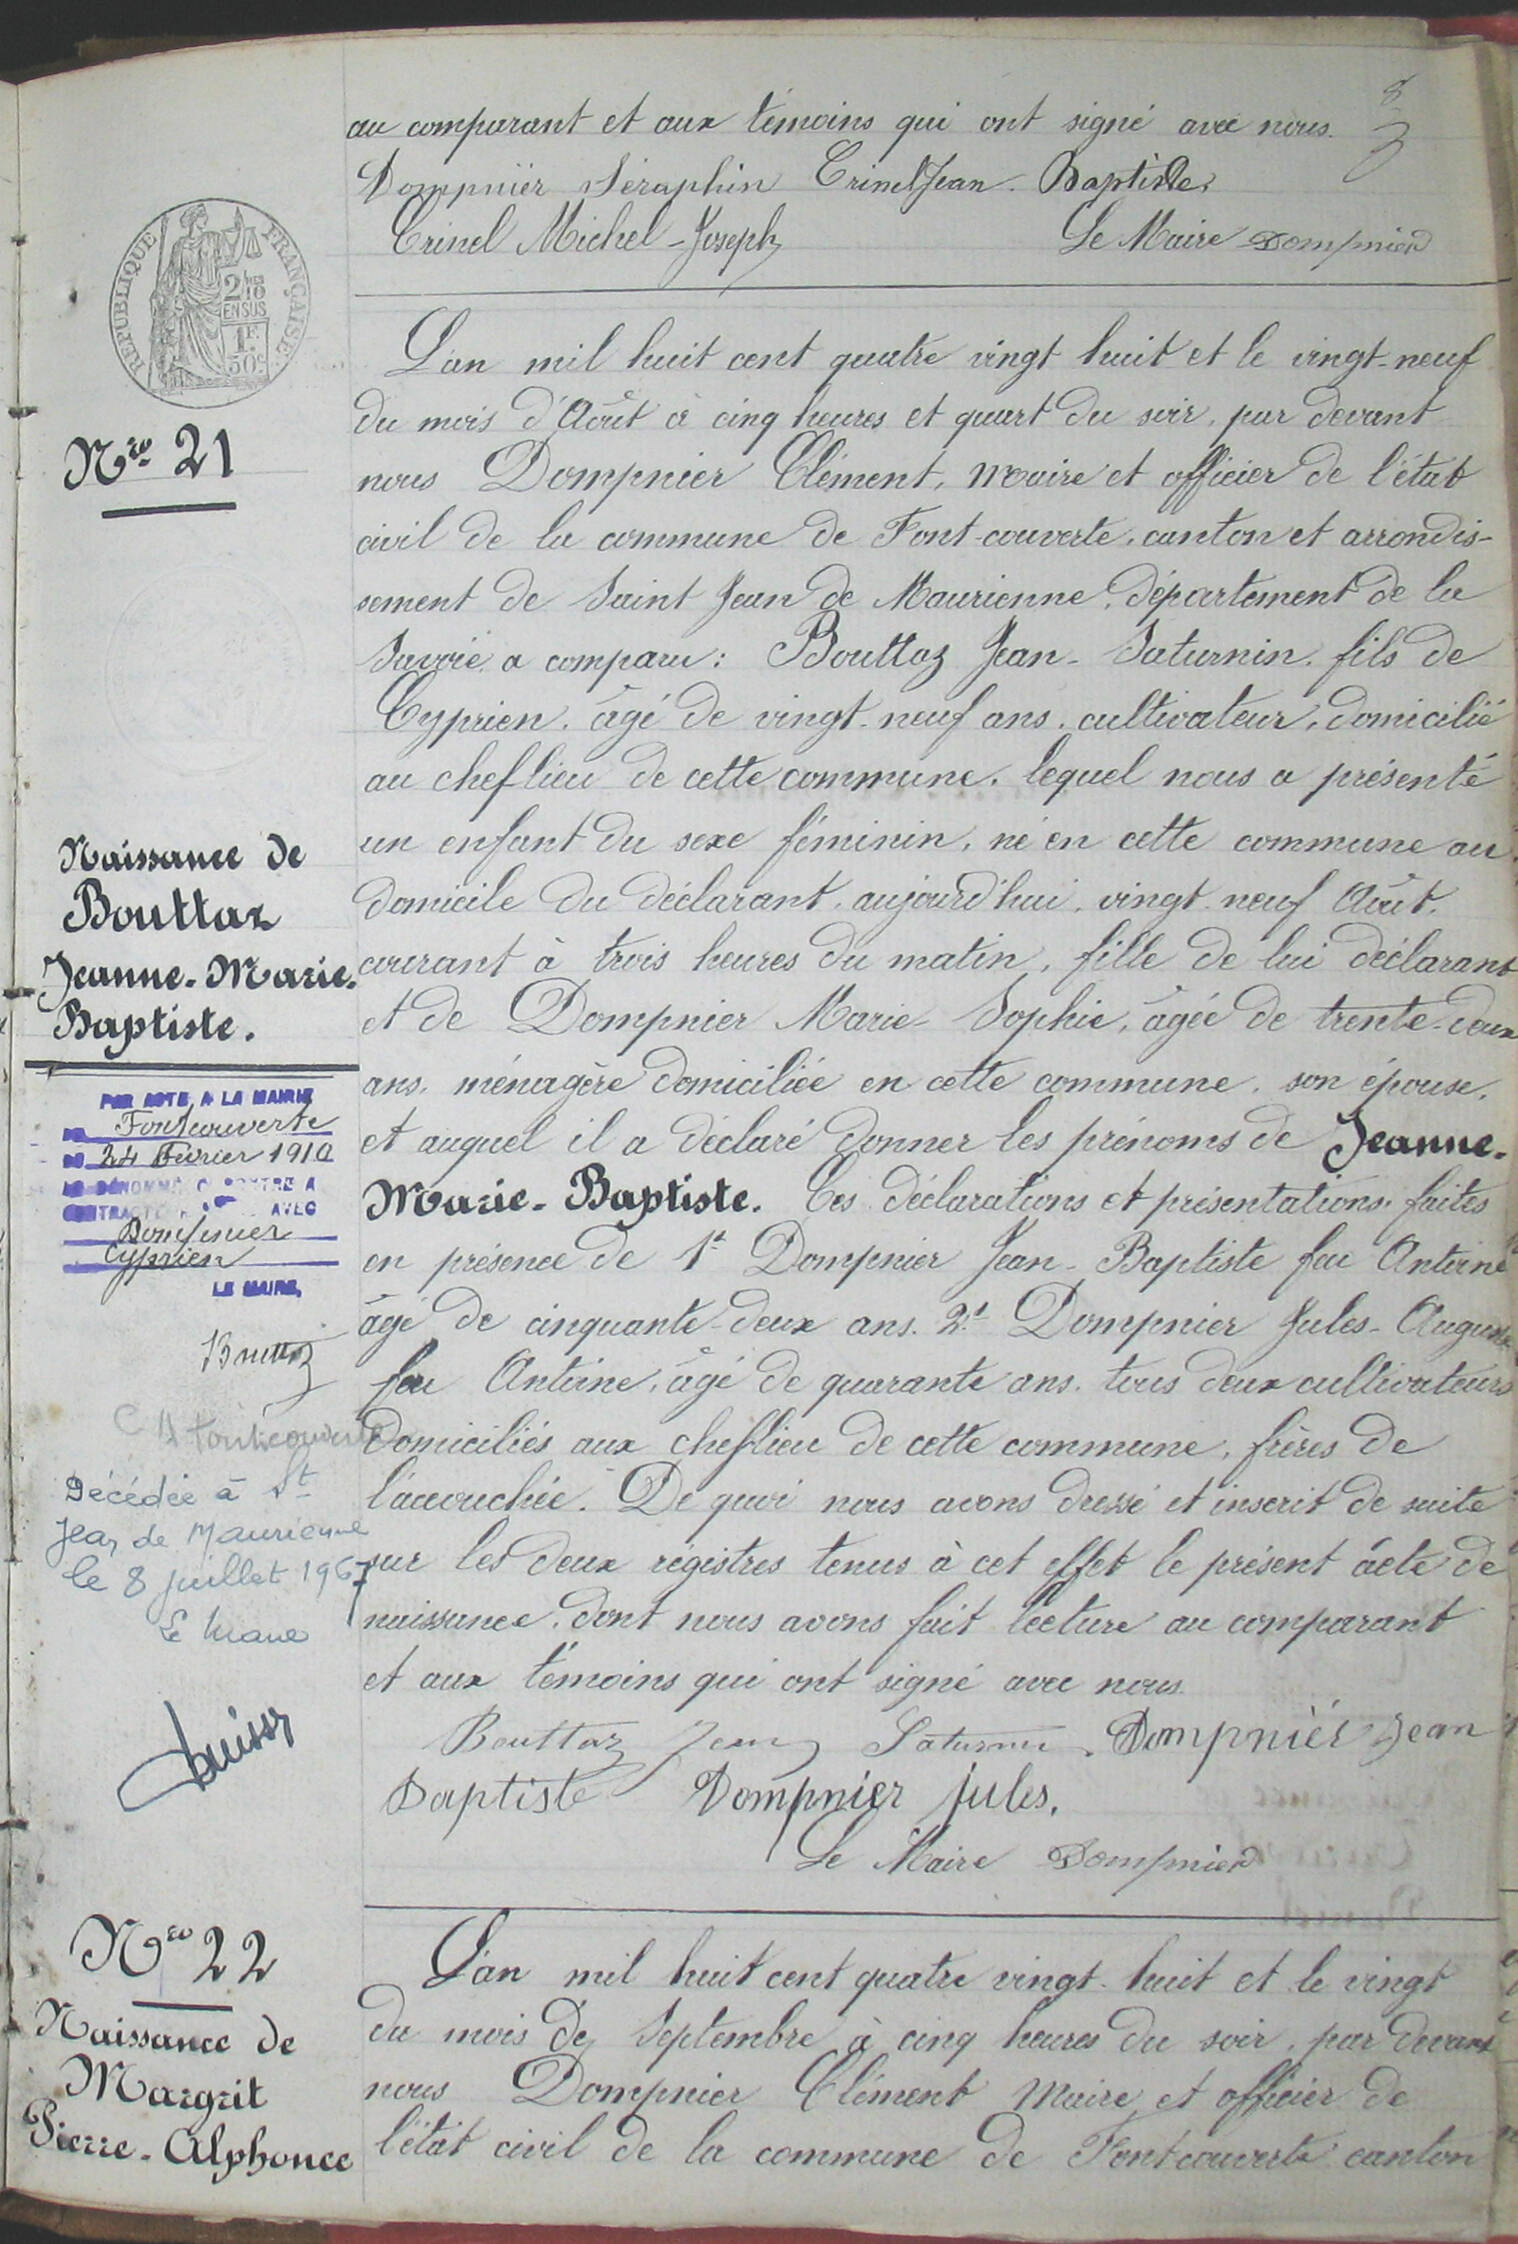 8
au comparant et aux témoins qui ont signé avec nous.
Dompnier Séraphin Trinel Jean-Baptiste
Trinel Michel-Joseph Le Maire Dompnier
REPUBLIQUE FRANÇAISE
2/10
EN SUS
1F.
50c.
Nro 21
Naissance de
Bouttaz
Jeanne-Marie-
Baptiste.
PAR ACTE A LA MAIRIE
Fontcouverte
24 Février 1910
AVEC
Dompnier
Cyprien
LE MAIRE,
Bouttaz
Fontcouverte
Décédée à St
Jean de Maurienne
le 8 juillet 1967
Le Maire
L'an mil huit cent quatre vingt huit et le vingt-neuf
du mois d'Août à cinq heures et quart du soir, par devant
nous Dompnier Clément, maire et officier de l'état
civil de la commune de Font-couverte, canton et arrondis-
sement de Saint Jean de Maurienne, département de la
Savoie, a comparu : Bouttaz Jean-Saturnin, fils de
Cyprien, âgé de vingt-neuf ans, cultivateur, domicilié
au chef lieu de cette commune, lequel nous a présenté
un enfant du sexe féminin, né en cette commune au
domicile du déclarant, aujourd'hui, vingt-neuf Août,
courant à trois heures du matin, fille de lui déclarant
et de Dompnier Marie-Sophie, âgée de trente-deux
ans, ménagère domiciliée en cette commune, son épouse,
et auquel il a déclaré donner les prénoms de Jeanne-
Marie-Baptiste. Ces déclarations et présentations faites
en présence de 1t Dompnier Jean-Baptiste feu Antoine
âgé de cinquante-deux ans. 2t Dompnier Jules-Auguste
feu Antoine, âgé de quarante ans, tous deux cultivateurs
domiciliés aux chef-lieu de cette commune, frères de
l'accouchée. De quoi nous avons dressé et inscrit de suite
sur les deux régistres tenus à cet effet le présent acte de
naissance, dont nous avons fait lecture au comparant
et aux témoins qui ont signé avec nous.
Bouttaz Jean Saturnin. Dompnier Jean
Baptiste Dompnier Jules.
Le Maire Dompnier
Nro 22
Naissance de
Margrit
Pierre-Alphonce
L'an mil huit cent quatre vingt-huit et le vingt
du mois de Septembre à cinq heures du soir, par devant
nous Dompnier Clément Maire et officier de
l'état civil de la commune de Fontcouverte canton